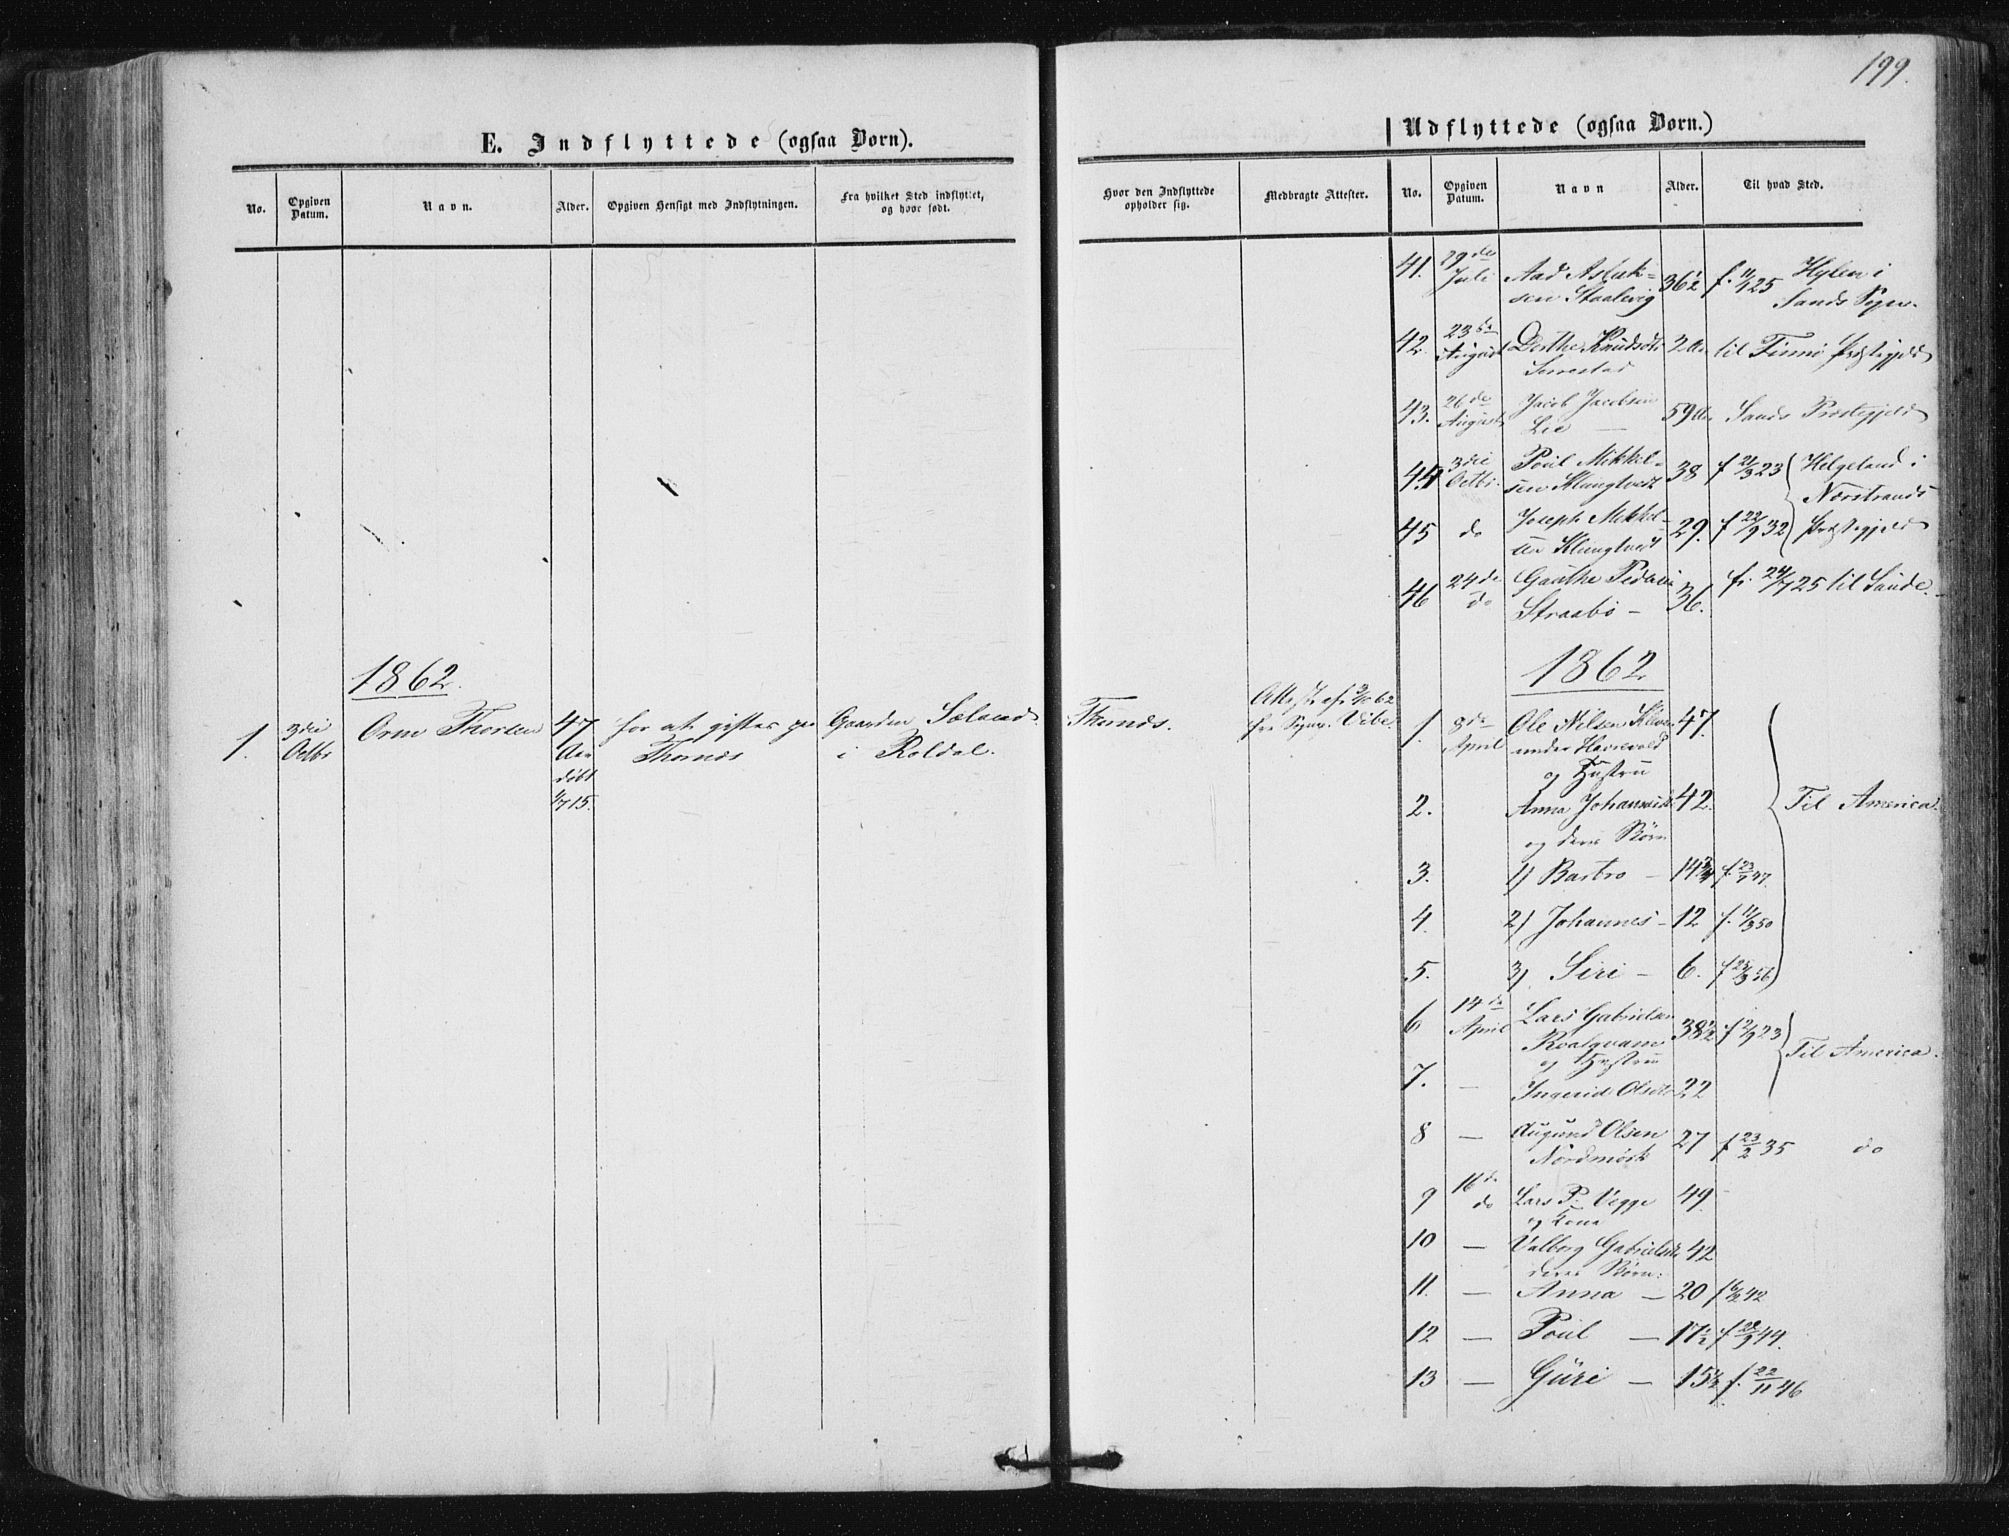 199.
E. Indflyttede (ogsaa Børn).
No.
Opgiven Datum.
Navn.
Alder.
Opgiven Hensigt med Indflytningen.
Fra hvilket Sted indflyttet, og hvor født.
1862.
1. 3die Octbr Orm Thorsen 47 for at giftes paa Gaarden
Aar Thornæs i Roldal.
døbt
1/7 15.
Udflyttede (ogsaa Børn.)
Hvor den Indflyttede opholder sig.
Medbragte Attester.
No.
Opgiven Datum.
Navn
Alder.
Til hvad Sted.
Attest af 3/10 62
Thornæs. fra Sogpr. Vibe.
41. 29de Juli Aad Aslak- 36½ f. 11/1 25 Hylen i
sen Staalevig Sands Sogn.
42. 23de August Dorthe Knudsdtr 2 Aar til Finnø Præstegjeld
43. 26de August Jacob Jacobsen 59 Aar Sands Præstegjeld
Lie —
44 3die Octbr. Poul Mikkel- 38 f 21/3 23 Helgeland i
sen Klungtvedt Nærstrands
45 do Joseph Mikkel- 29. f 22/9 32 Præstegjeld
sen Klungtvedt
46 24de do Gauthe 36. f. 24/7 25 til Saude.
Straabø —
1862
1. 8de April Ole Nilsen 47.
under Havrevold
og Hustru
2. Anna Johannesdtr 42. Til America.
og deres Børn
3. 1) Barbro — 14¾ f. 23/7 47.
4. 2) Johannes — 12 f. 11/3 50
5. 3) Siri — 6. f 25/3 56
6 14de April Lars Gabrielsen 38½ f 2/9 23
Roalqvam Til America.
og Hustru
7. — Ingerid Olsdtr 22
8 — Augund Olsen 27 f 23/2 35 do
Nordmork
9 16de do Lars P. Vegge 49.
og Kone
10 — Valborg Gabrielsdtr 42
deres Børn:
11. — Anna — 20 f 6/2 42
12 — Poul — 17½ f 28/9 44.
13 — Guri — 15½ f. 22/11 46